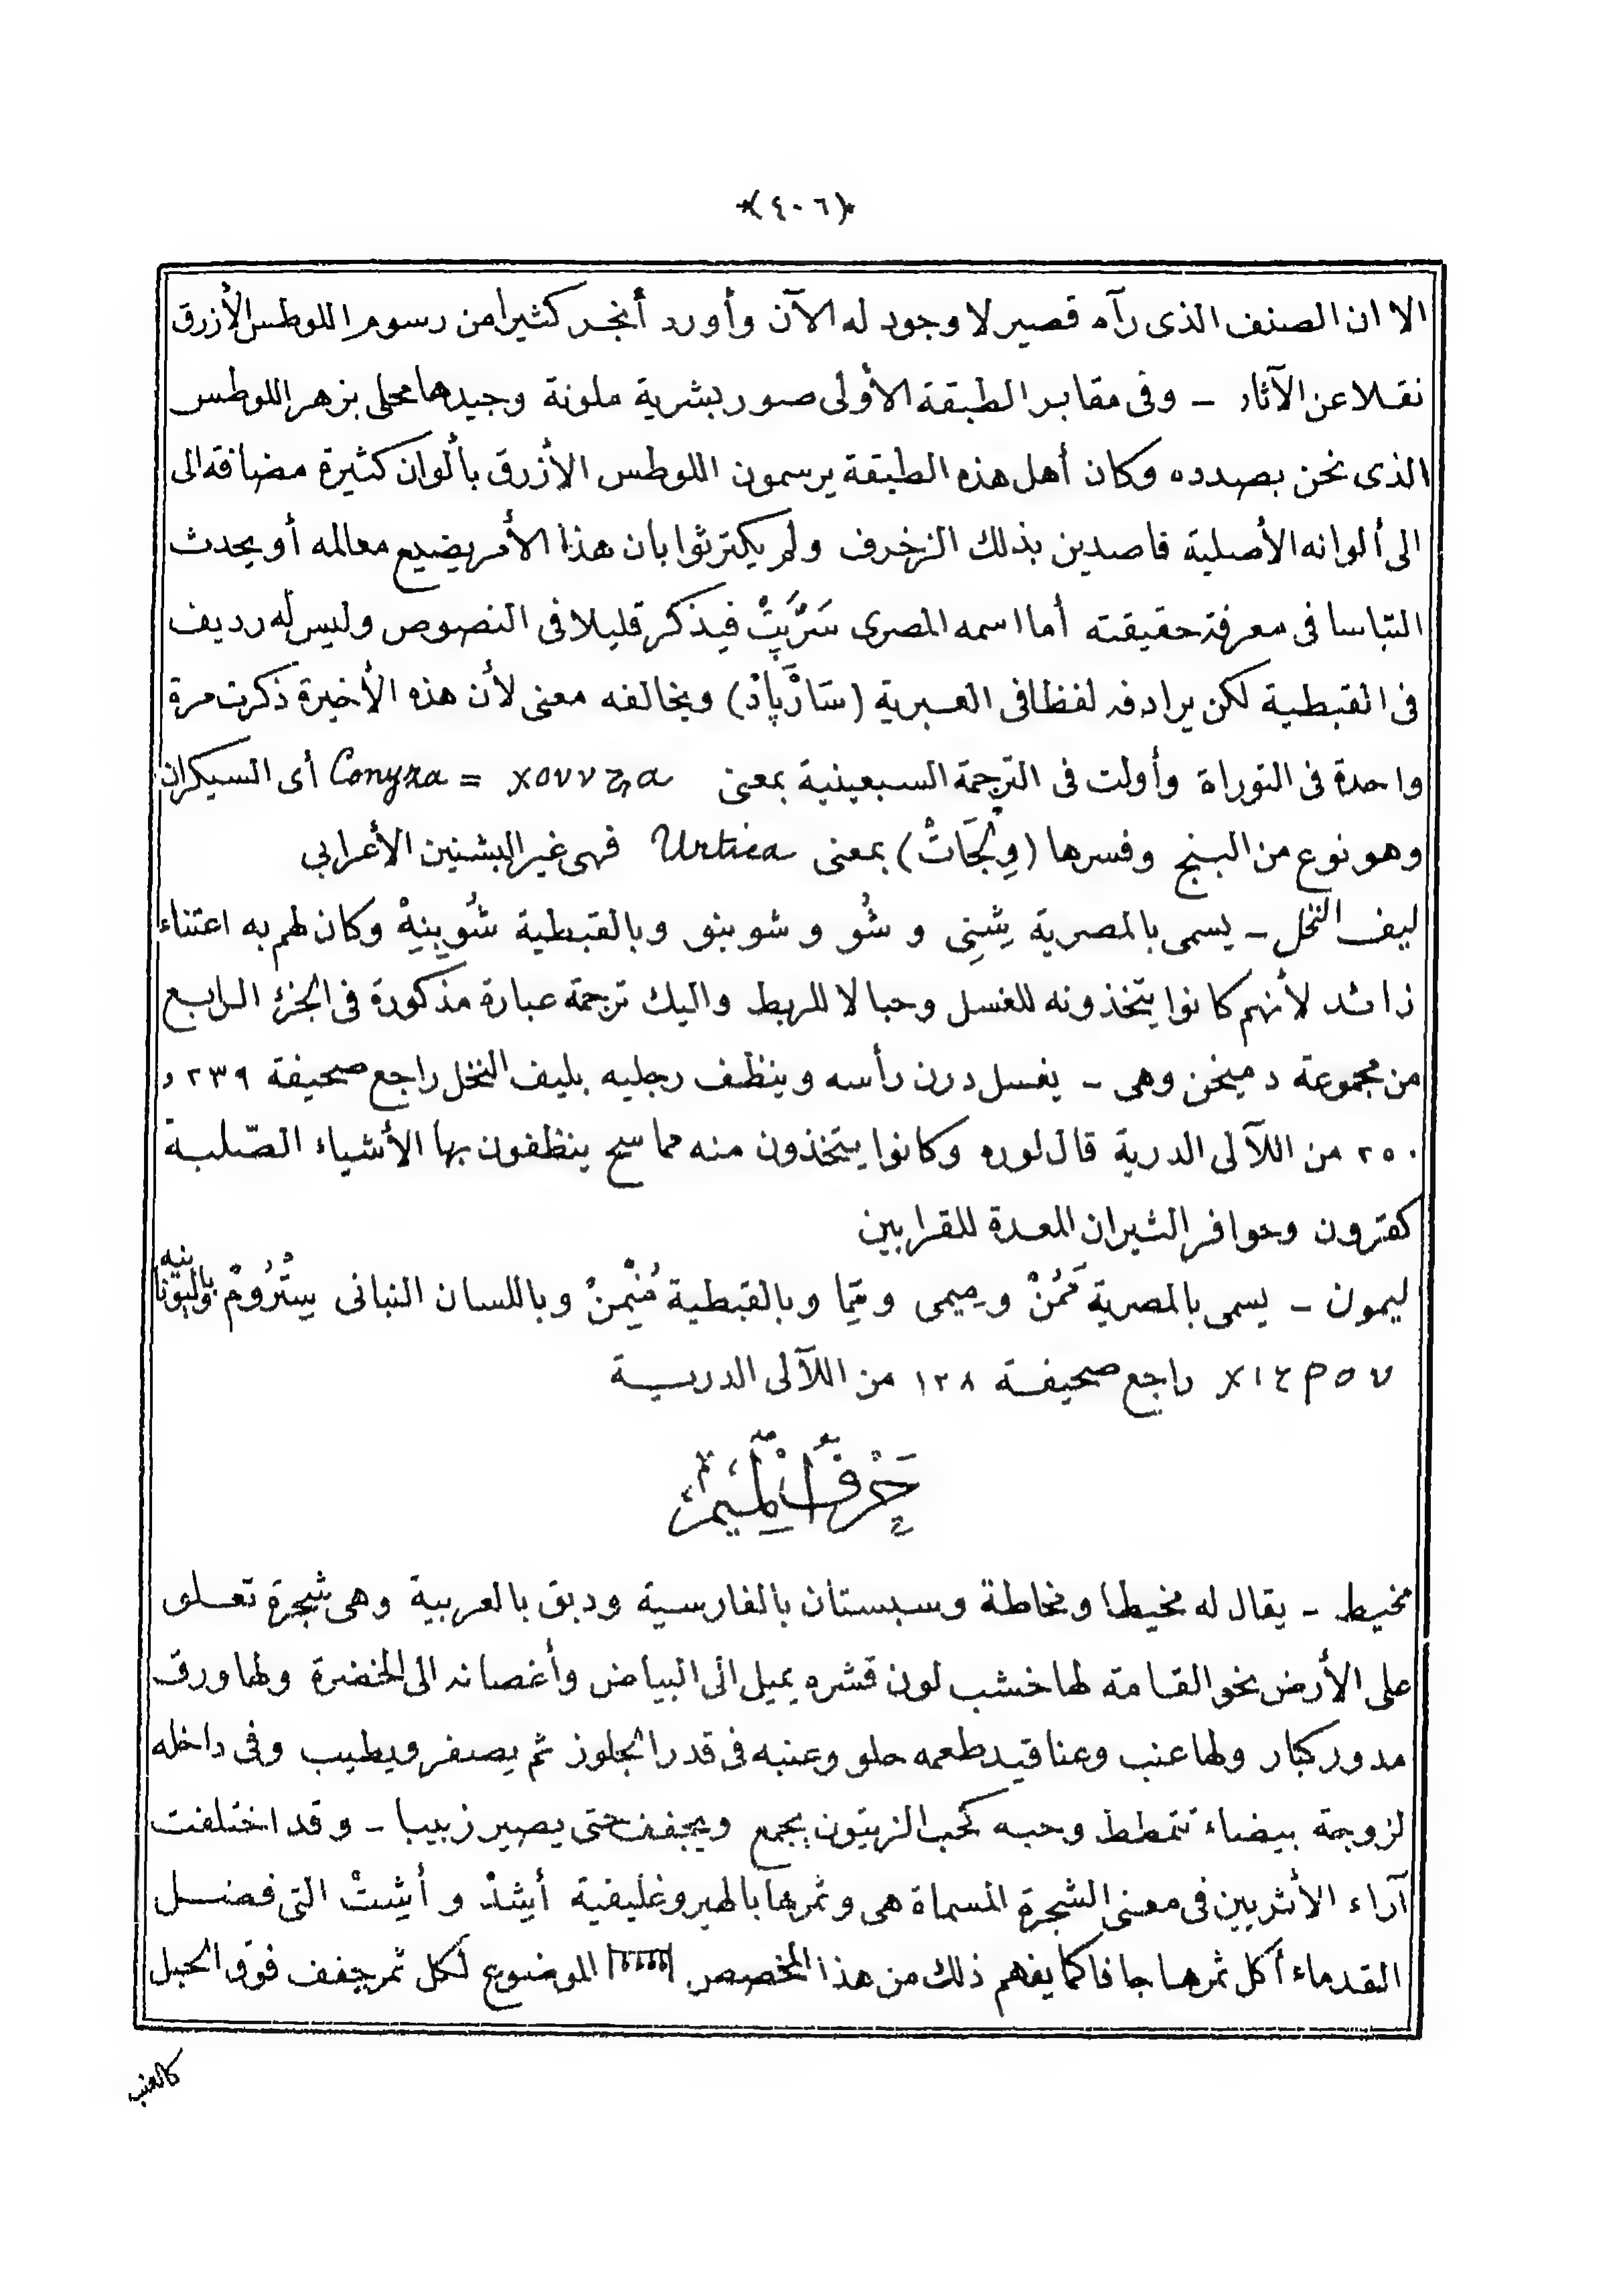 *(٤٠٦)*
الا ان الصنف الذى رآه قصير لا وجود له الآن وأورد أنجر كثيرا من رسوم اللوطس الأزرق
نقلا عن الآثار – وفى مقابر الطبقة الأولى صور بشرية ملونة وجيدها محلى بزهر اللوطس
الذى نحن بصدده وكان أهل هذه الطبقة يرسمون اللوطس الأزرق بألوان كثيرة مضافة الى
الى ألوانه الأصلية قاصدين بذلك الزخرف ولم يكترثوا بان هذا الأمر يضيع معالمه أو يحدث
التباسا فى معرفة حقيقته أما اسمه المصرى سَرْپَتْ فيذكر قليلا فى النصوص وليس له رديف
فى القبطية لكن يرادفه لفظا فى العبرية (سَارْپَادْ) ويخالفه معنى لأن هذه الأخيرة ذكرت مرة
واحدة فى التوراة وأولت فى الترجمة السبعينية بمعنى Conyza = χονυζα أى السيكران
وهو نوع من البنج وفسرها (وِلْجَاتْ) بمعنى Urtica فهى غير البشنين الأعرابى
ليف النخل – يسمى بالمصرية شِنِى و شُو و شوبنو وبالقبطية شُوبِينِهْ وكان لهم به اعتناء
زائد لأنهم كانوا يتخذونه للغسل وحبالا للربط واليك ترجمة عبارة مذكورة فى الجزء الرابع
من مجموعة دميخن وهى – يغسل درن رأسه وينظف رجليه بليف النخل راجع صحيفة ٢٣٩ و
٢٥٠ من اللآلى الدرية قال لوره وكانوا يتخذون منه مماسح ينظفون بها الأشياء الصّلبة
كقرون وحوافر الثيران المعدة للقرابين
ليمون – يسمى بالمصرية مَمُنْ و مِيمى و مِمَّا وبالقبطية مُنْيِمِنْ وباللسان النباتى سِتْرُومْ وباليونانيه
χιτρον راجع صحيفة ١٢٨ من اللآلى الدرية
حَرْفُ الْمِيمِ
مخيط – يقال له مخيطا ومخاطة وسبستان بالفارسية ودبق بالعربية وهى شجرة تعلو
على الأرض نحو القامة لها خشب لون قشره يميل الى البياض وأغصانه الى الخضرة ولها ورق
مدور كبار ولها عنب وعناقيد طعمه حلو وعنبه فى قدر الجلوز ثم يصفر ويطيب وفى داخله
لزوجة بيضاء تتمطط وحبه كحب الزيتون يجمع ويجفف حتى يصير زبيبا – وقد اختلفت
آراء الأثريين فى معنى الشجرة المسماة هى وثمرها بالهيروغليفية أيشدْ و أيشتْ التى فضل
القدماء أكل ثمرها جافا كما يفهم ذلك من هذا المخصص الموضوع لكل ثمر جفف فوق الحبل
كالعنب